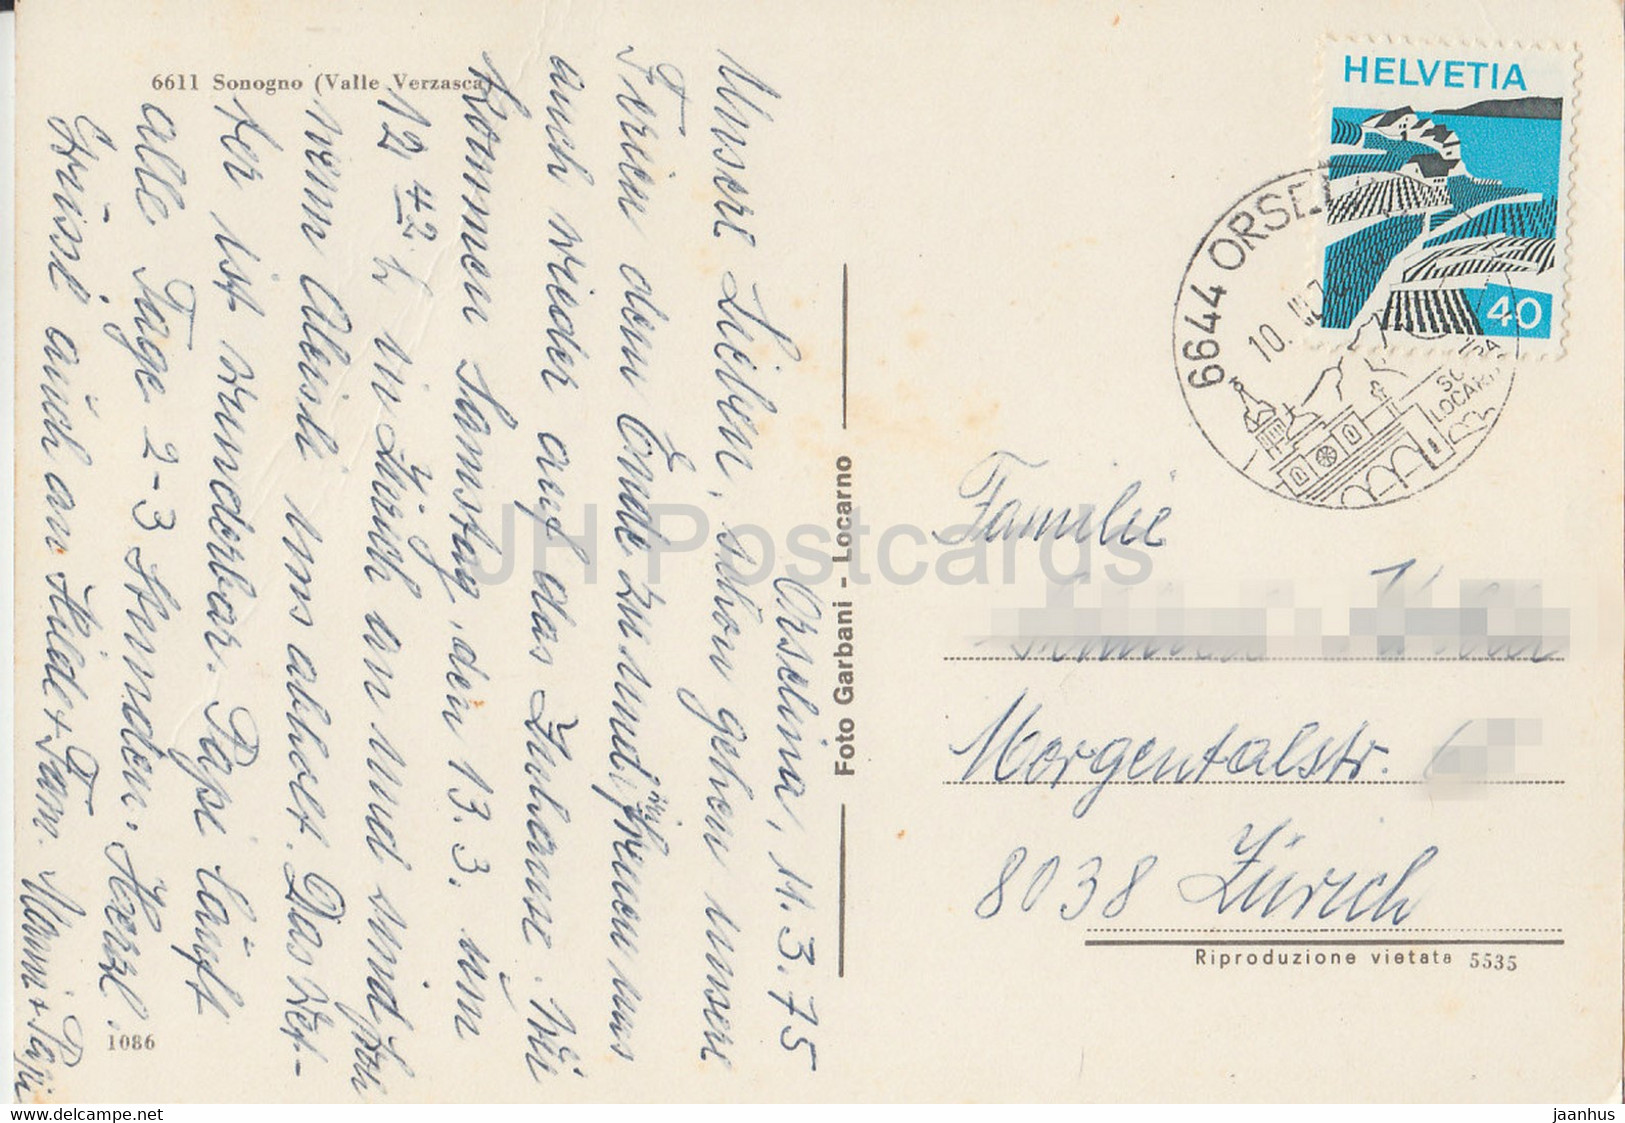 6611 Sonogno (Valle Verzasca)
Orselina, 11.3.75
Unsere Lieben, schon gehen unsere
Ferien dem Ende zu und wir freuen uns
auch wieder auf das Zuhause. Wir
kommen Samstag, den 13.3. um
12 42 h in Zürich an und sind froh
wenn Aleisli uns abholt. Das Wet-
ter ist wunderbar. Papi läuft
alle Tage 2-3 Stunden. Herzl.
Grüsse auch an Hilde + Fam. Mami + Papi
1086
Foto Garbani - Locarno
HELVETIA
40
6644 ORSEL
10. III.
LOCARN
Familie
Morgentalstr. 6
8038 Zürich
Riproduzione vietata 5535
JH Postcards
www.delcampe.net
jaanhus